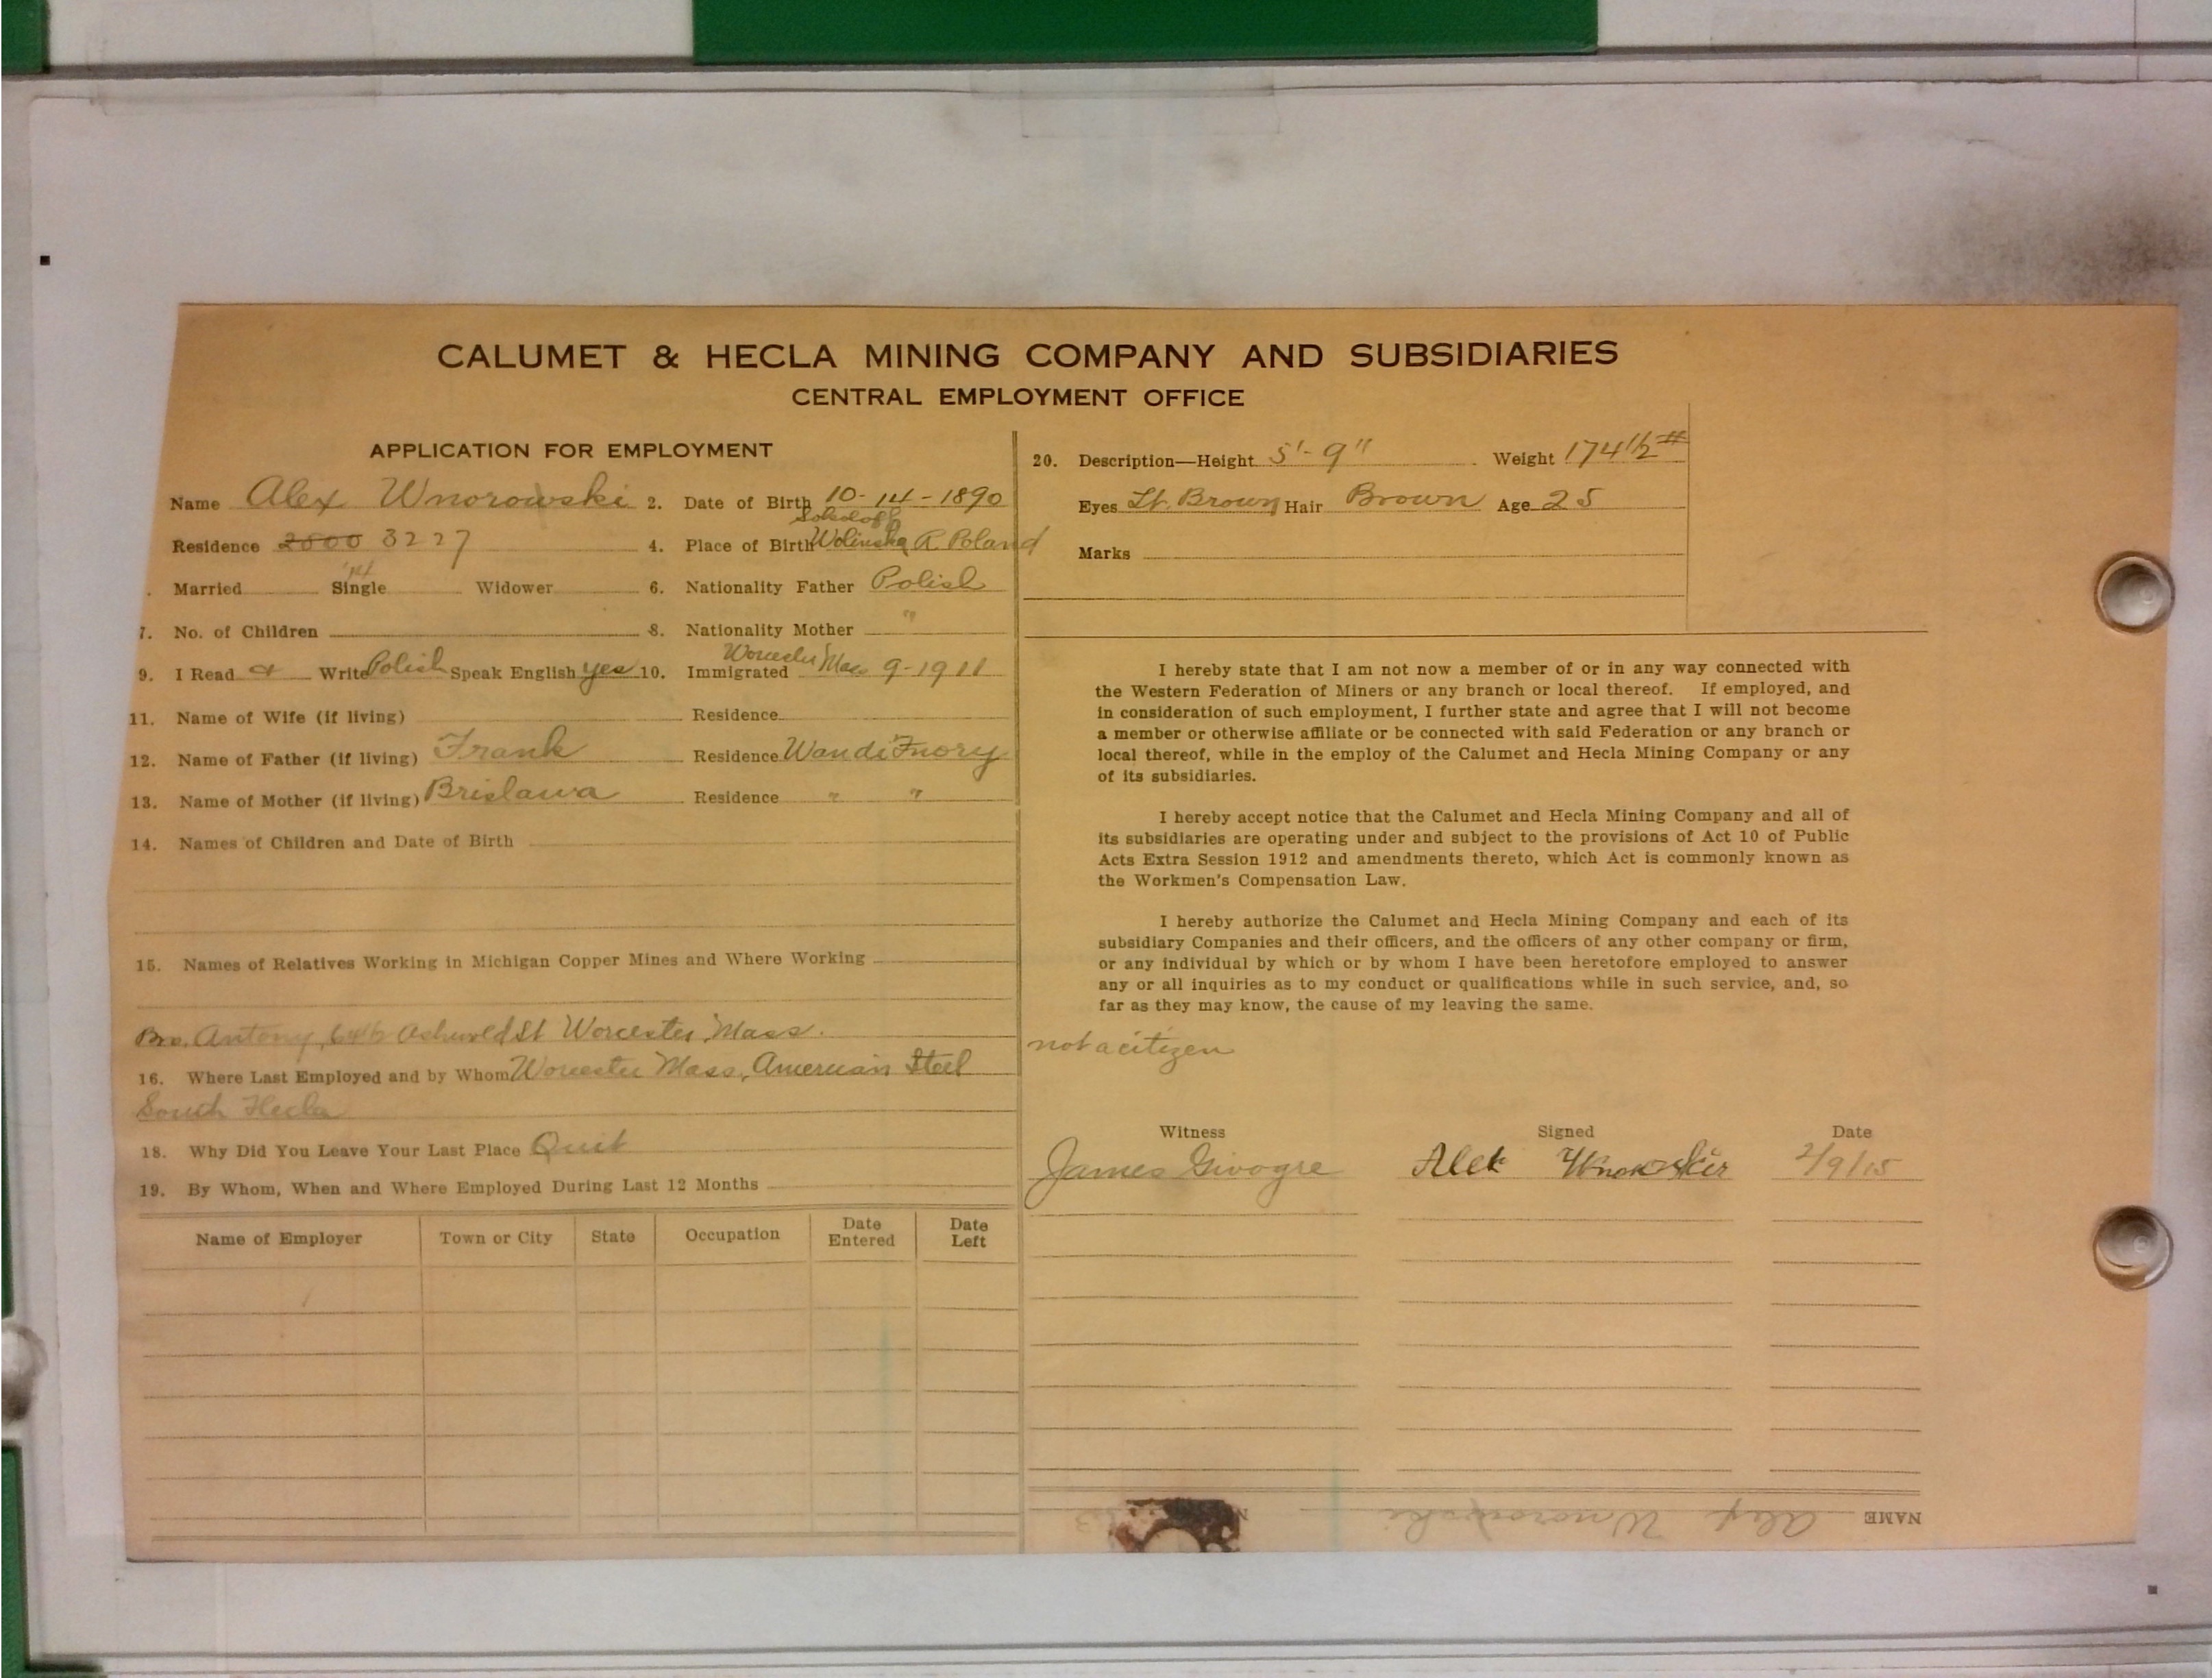 CALUMET & HECLA MINING COMPANY AND SUBSIDIARIES
CENTRAL EMPLOYMENT OFFICE
APPLICATION FOR EMPLOYMENT
Name Alex Wnorowski 2. Date of Birth 10-14-1890
Residence 2800 3227 4. Place of Birth Sokoloff Wolinska R. Poland
Married Single '14 Widower 6. Nationality Father Polish
7. No. of Children 8. Nationality Mother "
9. I Read & Write Polish Speak English yes 10. Immigrated Worcester Mass 9-1911
11. Name of Wife (if living) Residence
12. Name of Father (if living) Frank Residence
13. Name of Mother (if living) Brislawa Residence " "
14. Names of Children and Date of Birth
15. Names of Relatives Working in Michigan Copper Mines and Where Working
Bro. Antony, St Worcester, Mass.
16. Where Last Employed and by Whom Worcester Mass, American Steel
South Hecla
18. Why Did You Leave Your Last Place Quit
19. By Whom, When and Where Employed During Last 12 Months
Name of Employer Town or City State Occupation Date Entered Date Left
20. Description—Height 5'-9" Weight 174 1/2 #
Eyes Lt. Brown Hair Brown Age 25
Marks
I hereby state that I am not now a member of or in any way connected with
the Western Federation of Miners or any branch or local thereof. If employed, and
in consideration of such employment, I further state and agree that I will not become
a member or otherwise affiliate or be connected with said Federation or any branch or
local thereof, while in the employ of the Calumet and Hecla Mining Company or any
of its subsidiaries.
I hereby accept notice that the Calumet and Hecla Mining Company and all of
its subsidiaries are operating under and subject to the provisions of Act 10 of Public
Acts Extra Session 1912 and amendments thereto, which Act is commonly known as
the Workmen's Compensation Law.
I hereby authorize the Calumet and Hecla Mining Company and each of its
subsidiary Companies and their officers, and the officers of any other company or firm,
or any individual by which or by whom I have been heretofore employed to answer
any or all inquiries as to my conduct or qualifications while in such service, and, so
far as they may know, the cause of my leaving the same.
not a citizen
Witness Signed Date
James Givogre Alek 2/9/15
NAME Alex Wnorowski